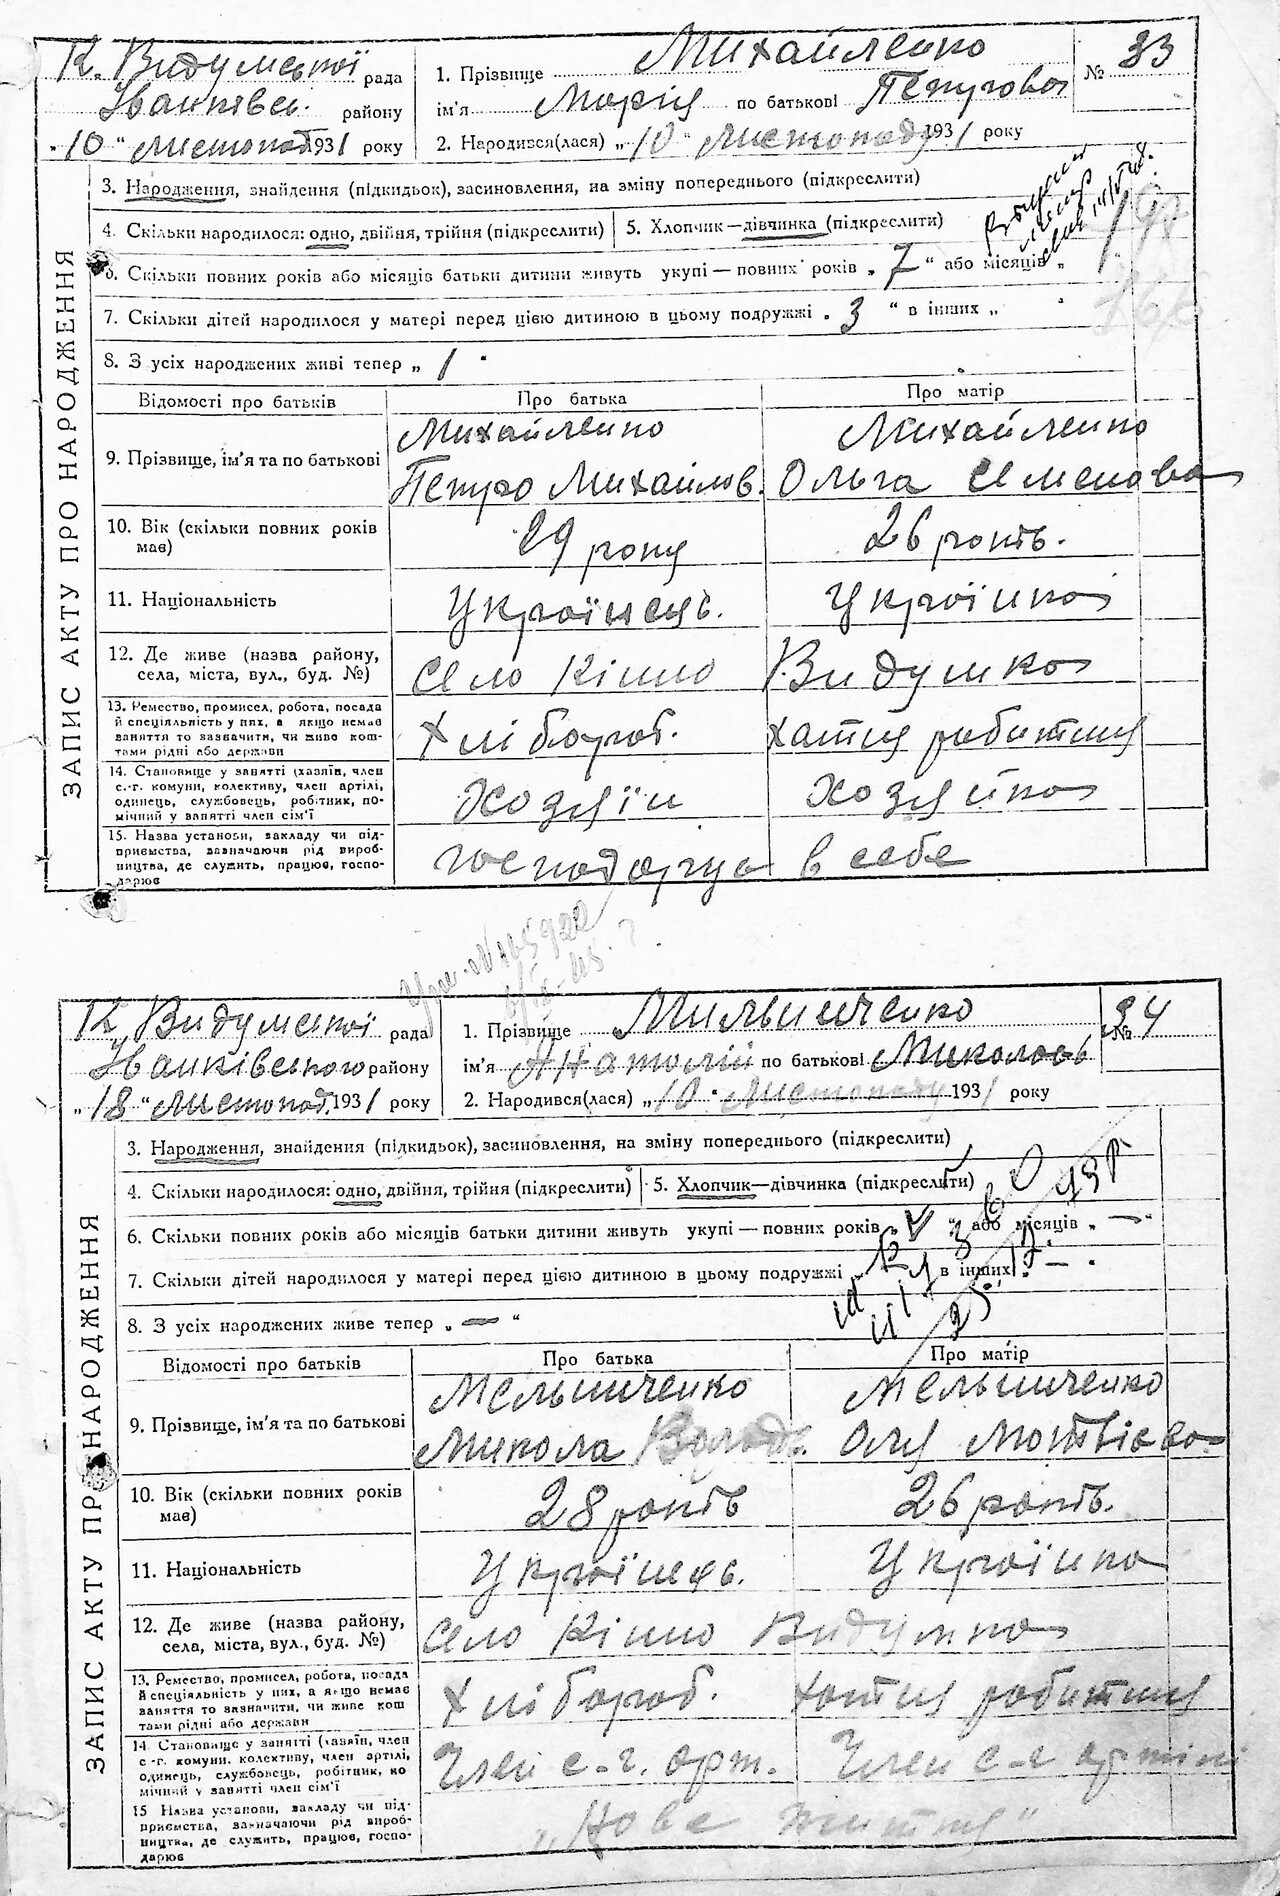 К. Видумської рада
Іванківс. району
"10" Листопад. 1931 року
1. Прізвище Михайленко
ім'я Марія по батькові Петрова
2. Народився(лася) „10" Листопаду 1931 року
№ 33
ЗАПИС АКТУ ПРО НАРОДЖЕННЯ
3. Народження, знайдення (підкидьок), засиновлення, на зміну попереднього (підкреслити)
4. Скільки народилося: одно, двійня, трійня (підкреслити)
5. Хлопчик—дівчинка (підкреслити)
6. Скільки повних років або місяців батьки дитини живуть укупі—повних років „7" або місяців „
7. Скільки дітей народилося у матері перед цією дитиною в цьому подружжі „3" в інших „ "
8. З усіх народжених живі тепер „1"
Відомості про батьків
Про батька
Про матір
9. Прізвище, ім'я та по батькові
Михайленко
Петро Михайлов.
Михайленко
Ольга Семенова
10. Вік (скільки повних років
має)
29 року
26 років.
11. Національність
Українець.
Українка
12. Де живе (назва району,
села, міста, вул., буд. №)
Село Кішно Видумка
13. Ремество, промисел, робота, посада
й спеціяльність у них, а якщо немає
заняття то зазначити, чи живе кош-
тами рідні або держави
Хлібороб.
хатня робитниця
14. Становище у занятті (хазяїн, член
с.-г. комуни, колективу, член артілі,
одинець, службовець, робітник, по-
мічний у занятті член сім'ї
Хозяїн
Хозяйка
15. Назва установи, закладу чи під-
приємства, зазначаючи рід вироб-
ництва, де служить, працює, госпо-
дарює
господарує в себе
К. Видумської рада
Іванківського району
„18" Листопад. 1931 року
1. Прізвище Мильниченко
ім'я Анатолій по батькові Миколаєв
2. Народився(лася) „10" Листопаду 1931 року
№ 34
ЗАПИС АКТУ ПРО НАРОДЖЕННЯ
3. Народження, знайдення (підкидьок), засиновлення, на зміну попереднього (підкреслити)
4. Скільки народилося: одно, двійня, трійня (підкреслити)
5. Хлопчик—дівчинка (підкреслити)
6. Скільки повних років або місяців батьки дитини живуть укупі—повних років „ " або місяців „—"
7. Скільки дітей народилося у матері перед цією дитиною в цьому подружжі в інших „—"
8. З усіх народжених живе тепер „—"
Відомості про батьків
Про батька
Про матір
9. Прізвище, ім'я та по батькові
Мельниченко
Микола Волод.
Мельниченко
Оля Мотвієва
10. Вік (скільки повних років
має)
28 років
26 років.
11. Національність
Українець.
Українка
12. Де живе (назва району,
села, міста, вул., буд. №)
Село Кішно Видумка
13. Ремество, промисел, робота, посада
й спеціяльність у них, а якщо немає
заняття то зазначити, чи живе кош
тами рідні або держави
Хлібороб.
хатня робитниця
14. Становище у занятті (хазяїн, член
с.-г. комуни, колективу, член артілі,
одинець, службовець, робітник, по
мічний у занятті член сім'ї
Член с-г. арт.
Член с-г артілі
15 Назва установи, закладу чи під-
приємства, зазначаючи рід вироб-
ництва, де служить, працює, госпо-
дарює
„Нове життя"